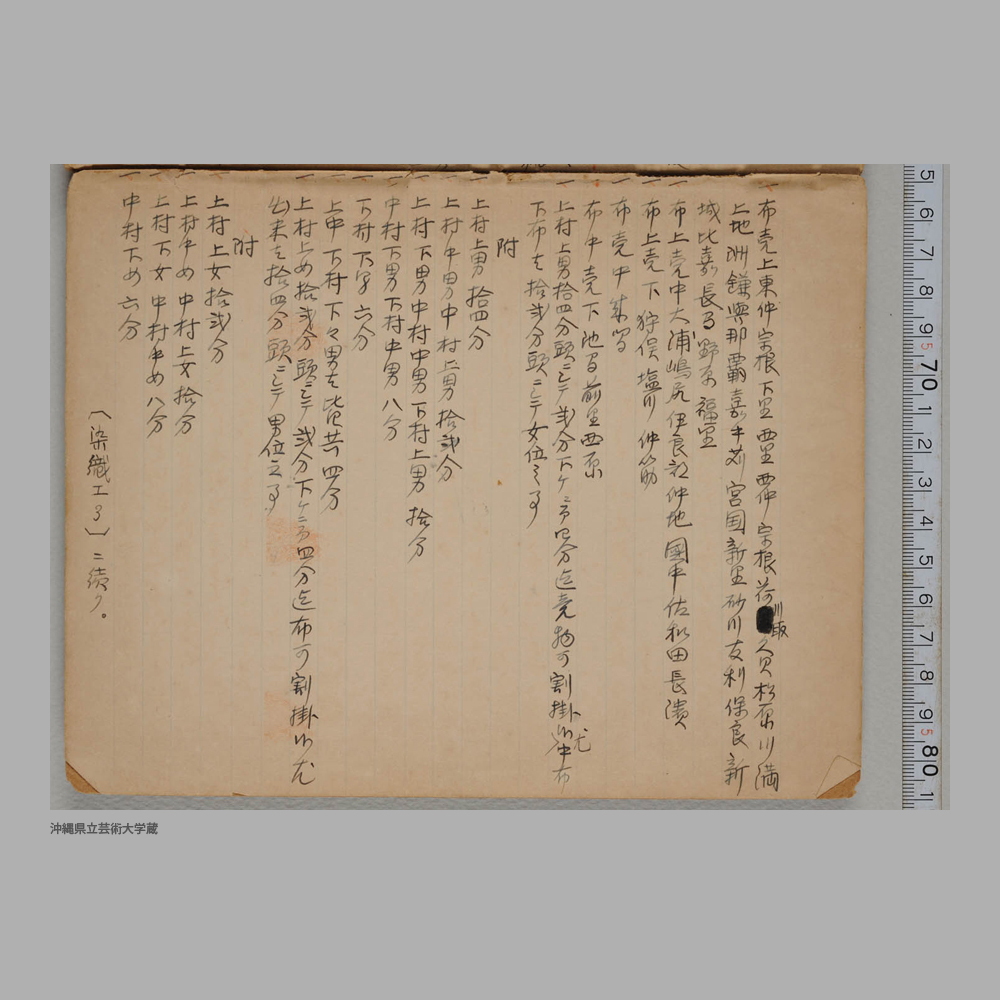 布売上東仲宗根下里西里西仲宗根荷川取久貝松原川満
上地洲鎌與那覇嘉手苅宮国新里砂川友利保良新
城比嘉長間野原福里
布上売中大浦嶋尻伊良部仲地國中佐和田長濱
布上売下狩俣塩川仲筋
布売中来間
布中売下池間前里西原
上村上男拾四分頭ニシテ弐分下ケニ而四分迄売物可割掛候尤中布
下布者拾弐分頭ニシテ女位之事
附
上村上男拾四分
上村中男中村上男拾弐分
上村下男中村中男下村上男拾分
中村下男下村中男八分
下村下男六分
上中下村下々男者皆共四分
上村上女拾弐分頭ニシテ弐分下ケニ而四分迄布可割掛候尤
出来者拾四分頭ニシテ男位之事
附
上村上女拾弐分
上村中女中村上女拾分
上村下女中村中女八分
中村下女六分
(染織工3)ニ続ク。
5 6 7 8 9 70 1 2 3 4 5 6 7 8 9 80 1
沖縄県立芸術大学蔵